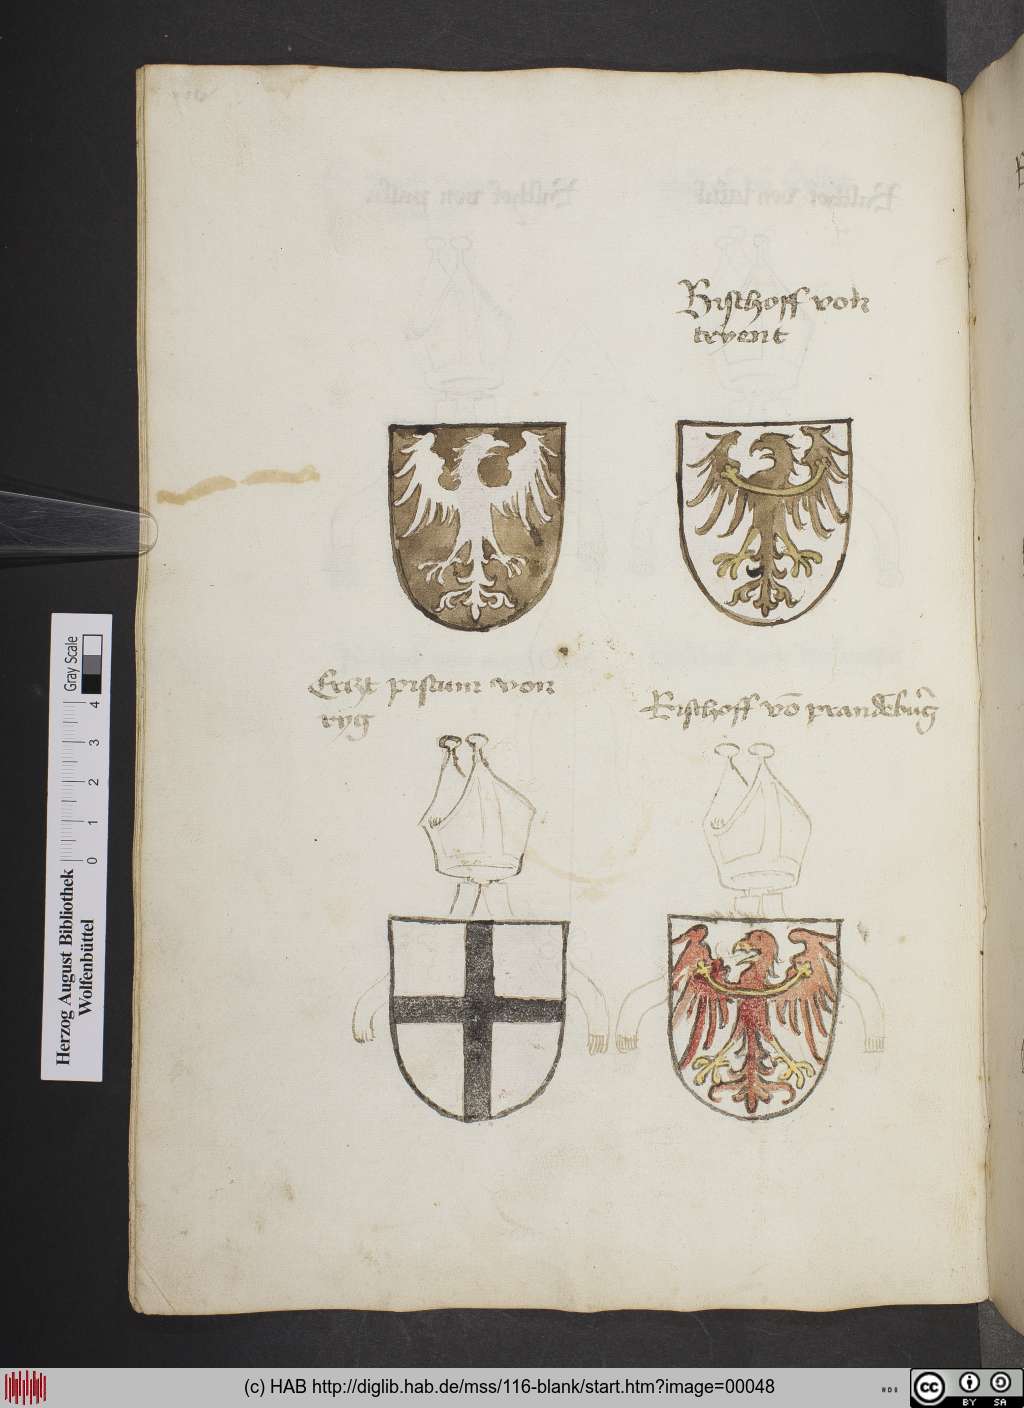 Bischoff von
tryent
Ercz pistum von
ryg
Bischoff vō prandēbůg
Herzog August Bibliothek
Wolfenbüttel
Gray Scale
0 1 2 3 4
(c) HAB http://diglib.hab.de/mss/116-blank/start.htm?image=00048
cc BY SA